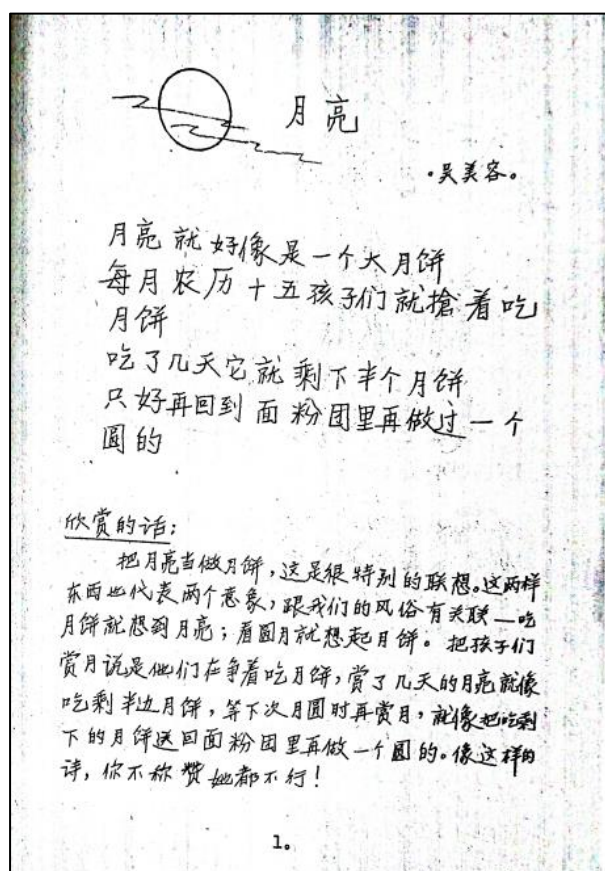 月亮
·吴美容。
月亮就好像是一个大月饼
每月农历十五孩子们就搶着吃
月饼
吃了几天它就剩下半个月饼
只好再回到面粉团里再做过一个
圆的
欣赏的话：
把月亮当做月饼，这是很特别的联想。这两样
东西也代表两个意象，跟我们的风俗有关联—吃
月饼就想到月亮；看圆月就想起月饼。把孩子们
赏月说是他们在争着吃月饼，赏了几天的月亮就像
吃剩半边月饼，等下次月圆时再赏月，就像把吃剩
下的月饼送回面粉团里再做一个圆的。像这样的
诗，你不称赞她都不行！
1。